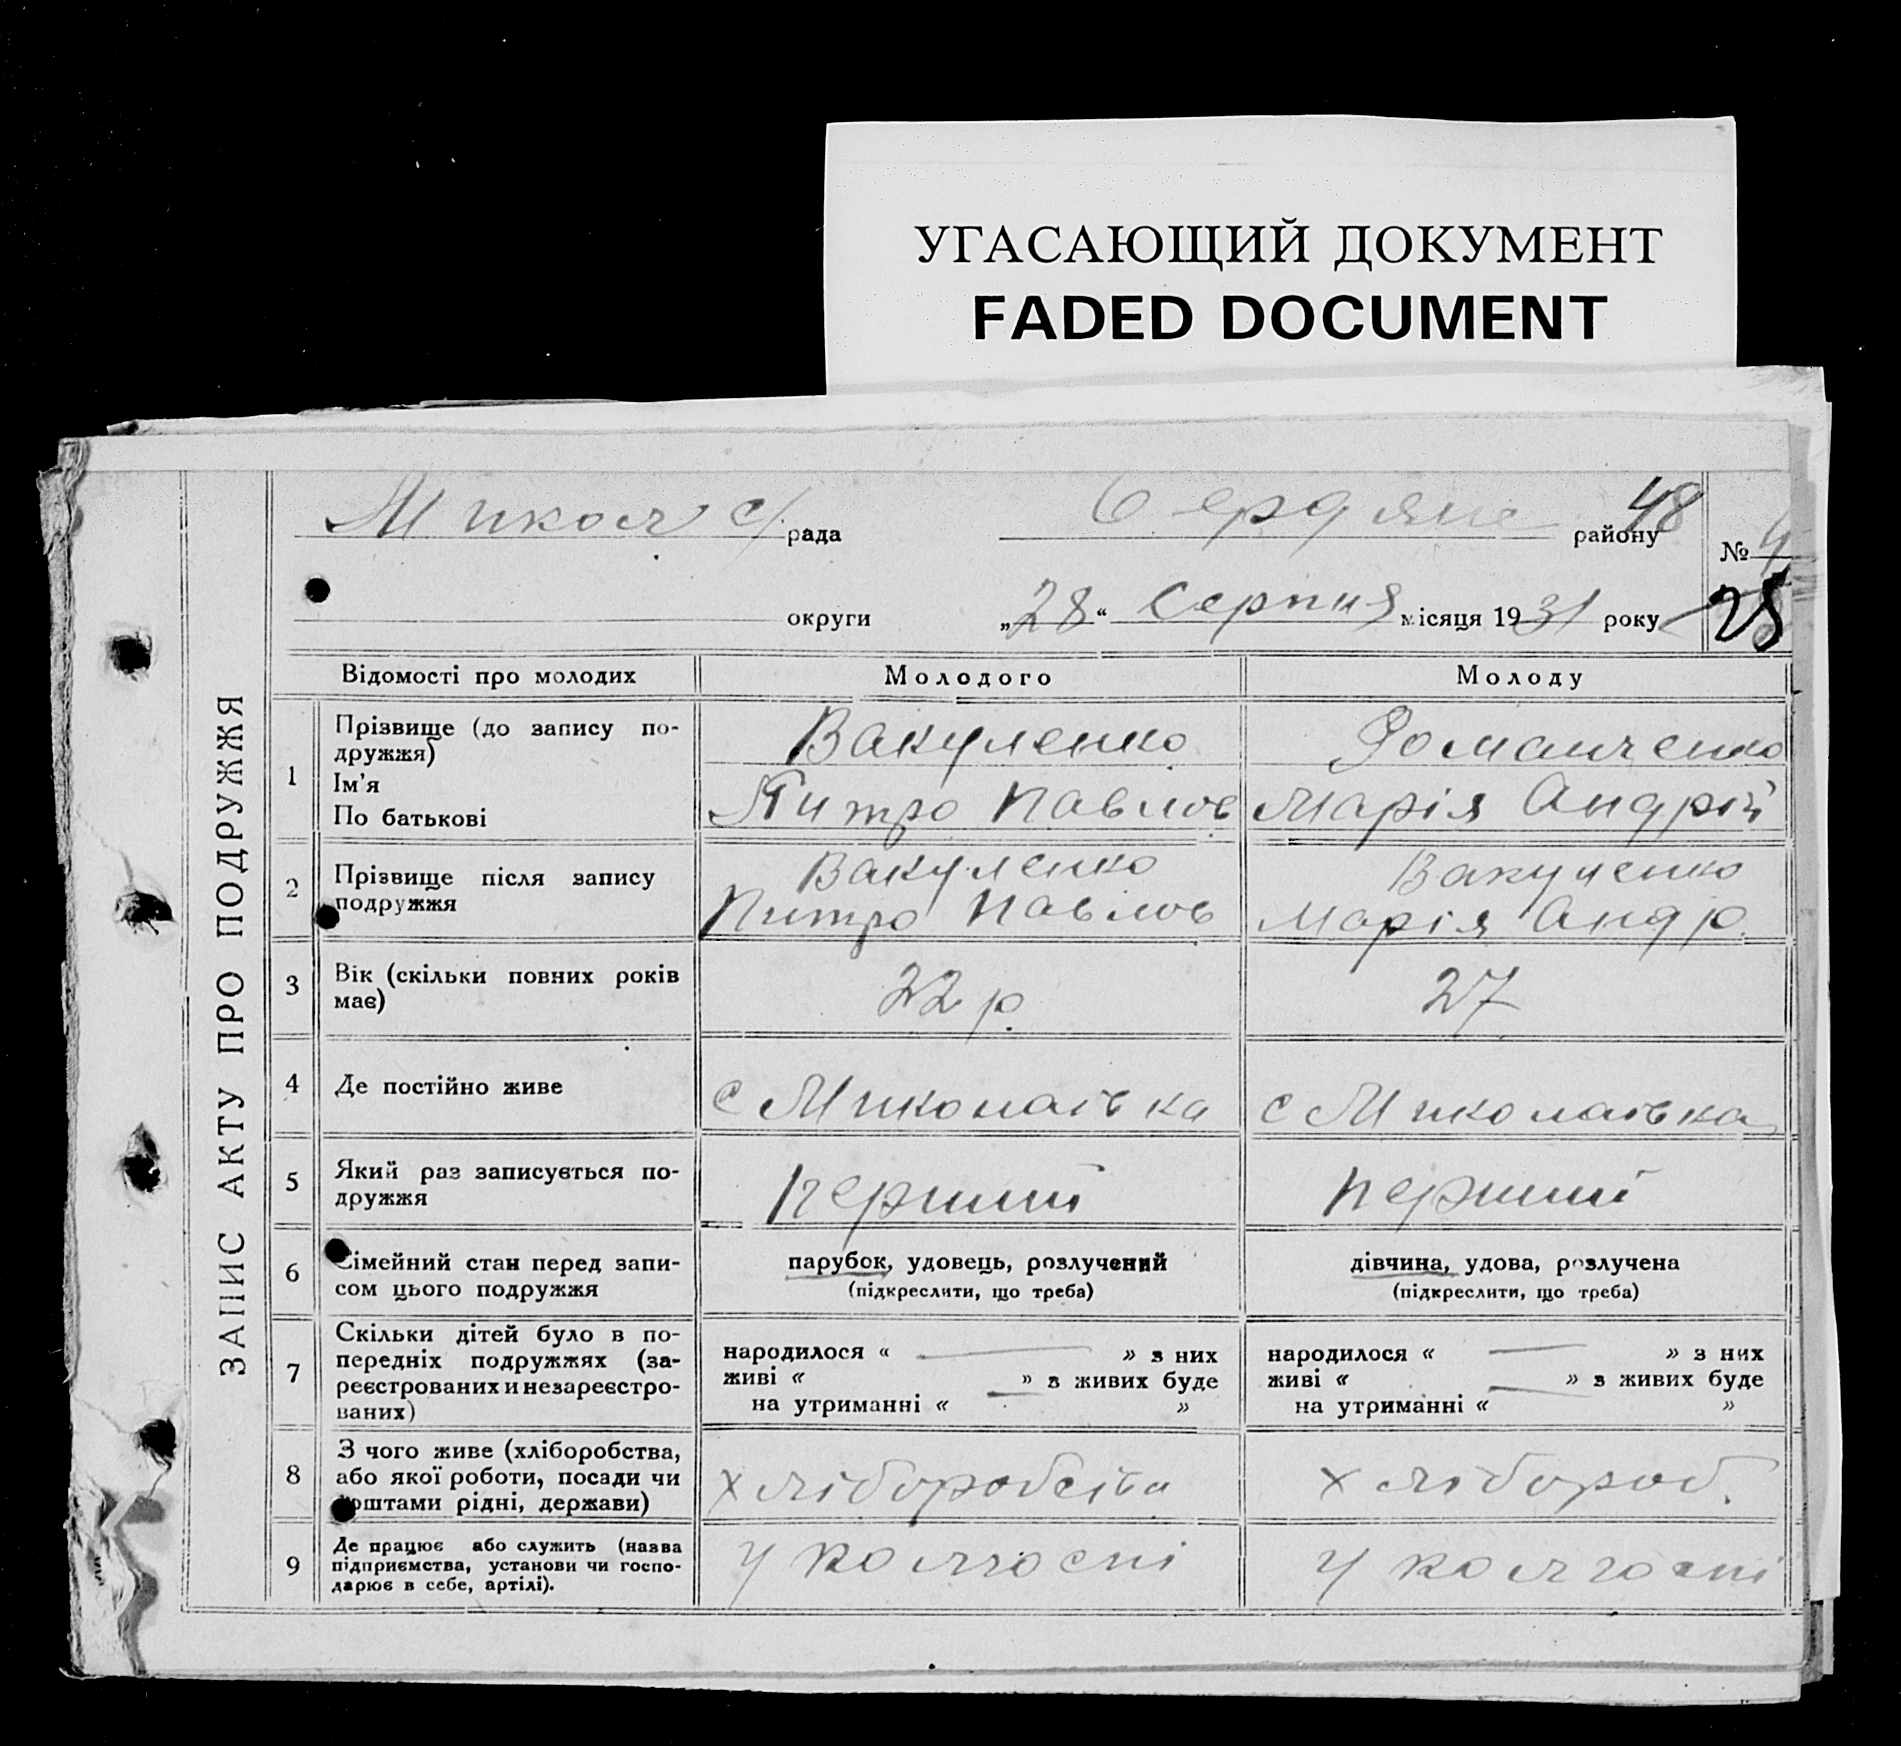 УГАСАЮЩИЙ ДОКУМЕНТ
FADED DOCUMENT
48
Микол с/рада Бердянс району
№ 4
округи „28“ Серпня місяця 1931 року
28
ЗАПИС АКТУ ПРО ПОДРУЖЖЯ
Відомості про молодих Молодого Молоду
1 Прізвище (до запису по-
дружжя)
Вакуленко Романченко
Ім'я
По батькові
Питро Павлов Марія Андрій
2 Прізвище після запису
подружжя
Вакуленко Вакуленко
Питро Павлов Марія Андр.
3 Вік (скільки повних років
має)
22 р. 27
4 Де постійно живе с Миколаівка с Миколаівка
5 Який раз записується по-
дружжя
перший перший
6 Сімейний стан перед запи-
сом цього подружжя
парубок, удовець, розлучений дівчина, удова, розлучена
(підкреслити, що треба) (підкреслити, що треба)
7 Скільки дітей було в по-
передніх подружжях (за-
реєстрованих и незареєстро-
ваних)
народилося « — » з них народилося « — » з них
живі « » з живих буде живі « » з живих буде
на утриманні « — » на утриманні « — »
8 З чого живе (хліборобства,
або якої роботи, посади чи
коштами рідні, держави)
хліборобства хлібороб.
9 Де працює або служить (назва
підприємства, установи чи госпо-
дарює в себе, артілі).
у колгоспі у колгоспі